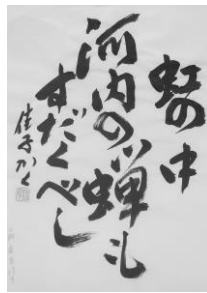 虹の中
河内の蝉も
すだくべし
佳子かく